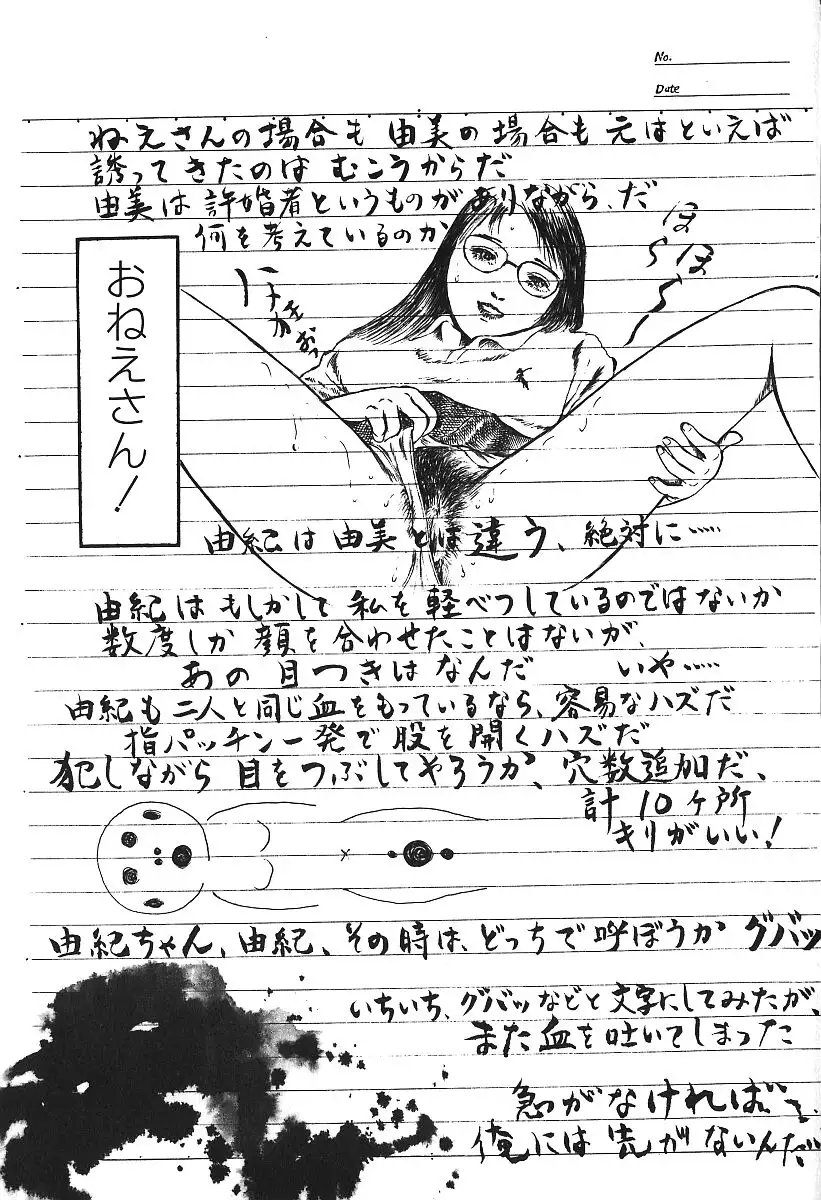 No.
Date
ねえさんの場合も 由美の場合も 元はといえば
誘ってきたのは むこうからだ
由美は許婚者というものがありながら、だ
何を考えているのか
おねえさん!
ほ〜らほ〜
由紀は由美とは違う、絶対に……
由紀はもしかして 私を軽べつしているのではないか
数度しか顔を合わせたことはないが、
あの目つきはなんだ いや……
由紀も二人と同じ血をもっているなら、容易なハズだ
指パッチン一発で股を開くハズだ
犯しながら 目をつぶしてやろうか、穴数追加だ、
計10ヶ所
キリがいい!
由紀ちゃん、由紀、その時は、どっちで呼ぼうか グバッ
いちいち、グバッなどと文字にしてみたが、
また血を吐いてしまった
急がなければ
俺には先がないんだ